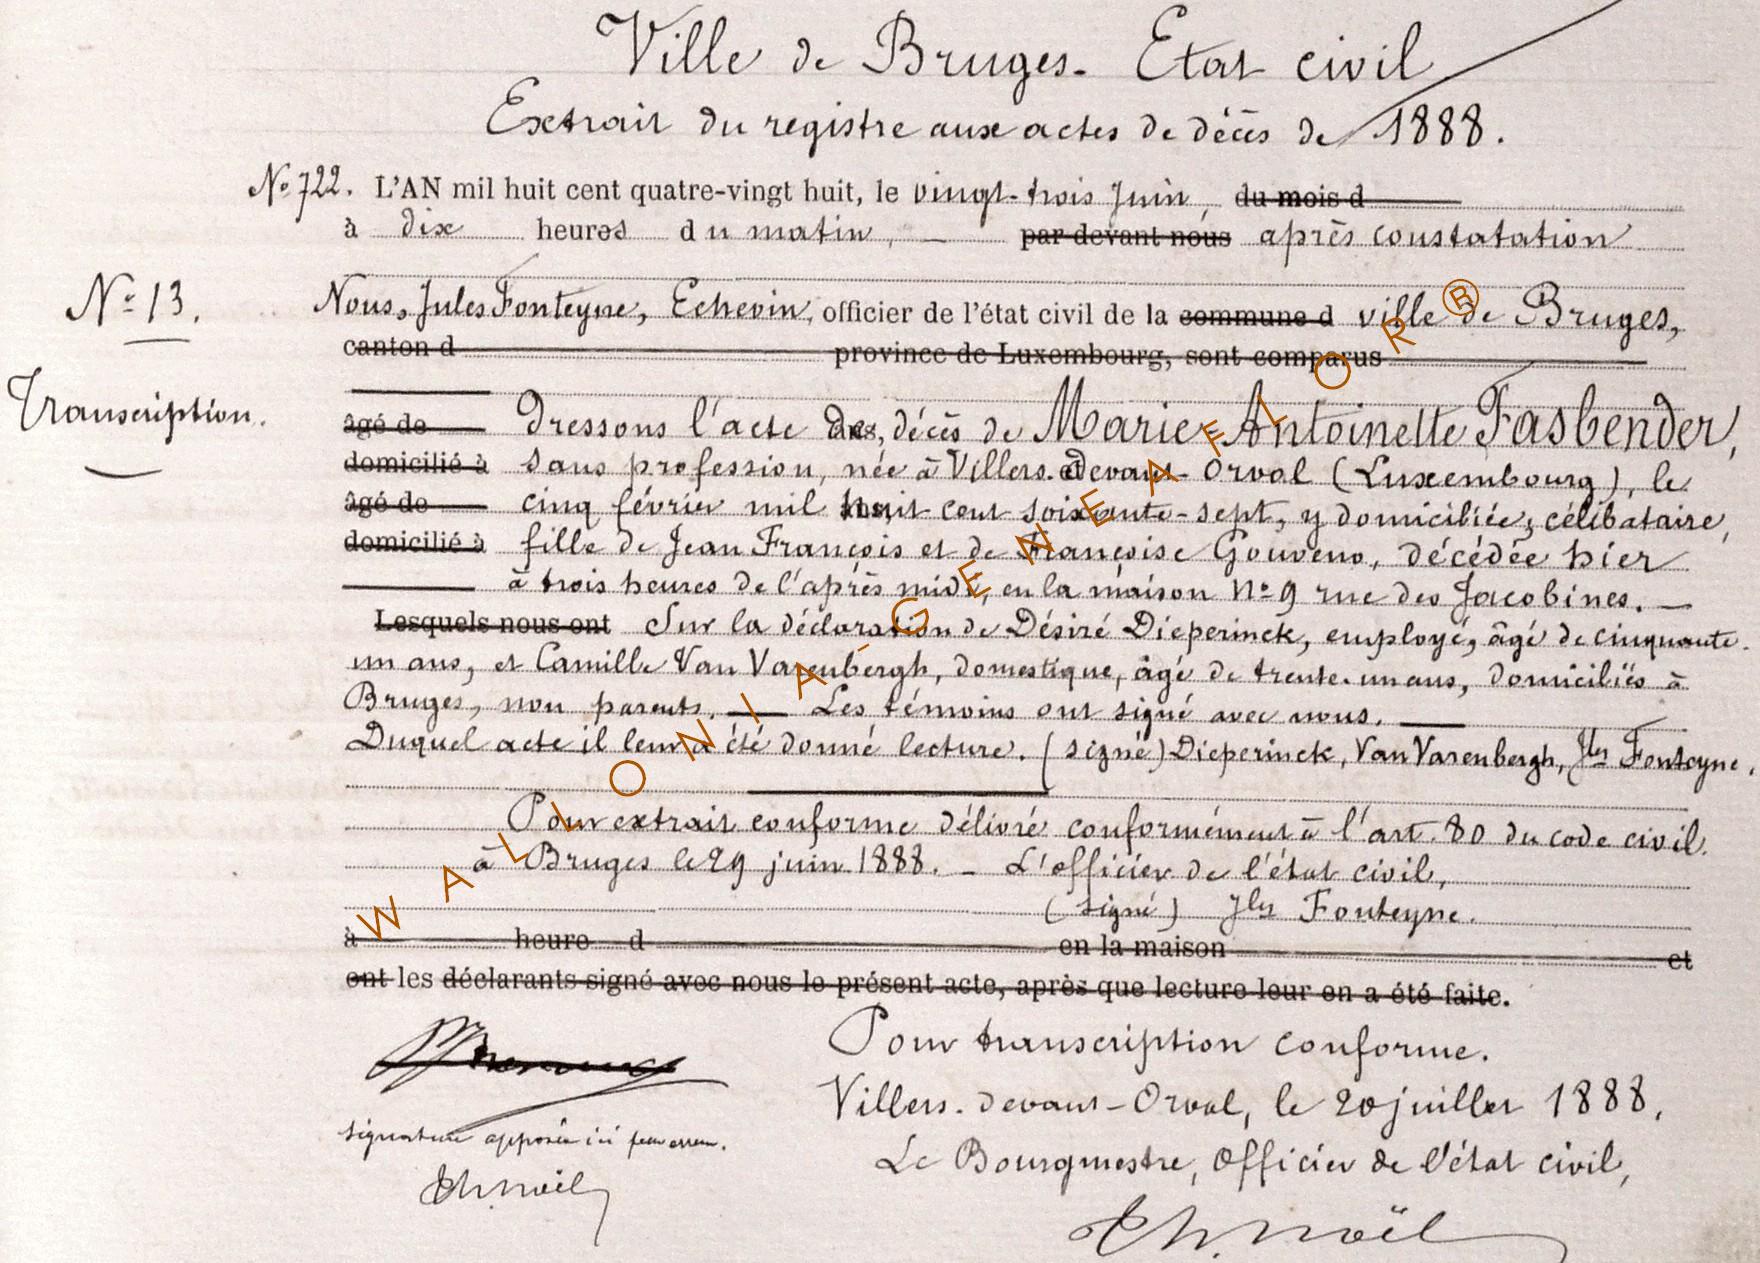 Ville de Bruges. Etat civil
Extrait du registre aux actes de décès de 1888.
No 722. L'AN mil huit cent quatre-vingt huit, le vingt-trois Juin, du mois d
à dix heures du matin, — par devant nous après constatation
No 13.
Nous, Jules Fonteyne, Echevin, officier de l'état civil de la commune d ville de Bruges,
canton d province de Luxembourg, sont comparus
Transcription.
âgé de dressons l'acte de décès de Marie-Antoinette Fasbender,
domicilié à sans profession, née à Villers-devant-Orval (Luxembourg), le
âgé de cinq février mil huit cent soixante-sept, y domiciliée, célibataire,
domicilié à fille de Jean François et de Françoise Gouveno, décédée hier
à trois heures de l'après midi, en la maison No 9 rue des Jacobines. —
Lesquels nous ont Sur la déclaration de Désiré Dieperinck, employé, âgé de cinquante-
un ans, et Camille Van Varenbergh, domestique, âgé de trente-un ans, domiciliés à
Bruges, non parents. — Les témoins ont signé avec nous. —
Duquel acte il leur a été donné lecture. (signé) Dieperinck, Van Varenbergh, Jles Fonteyne.
Pour extrait conforme délivré conformément à l'art. 80 du code civil.
à Bruges le 29 juin 1888. — L'officier de l'état civil,
(signé) Jles Fonteyne.
à heure d en la maison et
ont les déclarants signé avec nous le présent acte, après que lecture leur en a été faite.
Pour transcription conforme.
Villers-devant-Orval, le 20 juillet 1888,
signature apposée ici par erreur.
Le Bourgmestre, Officier de l'état civil,
Th. Noël
Th. Noël
WALLONIA-GENEAFLOR®